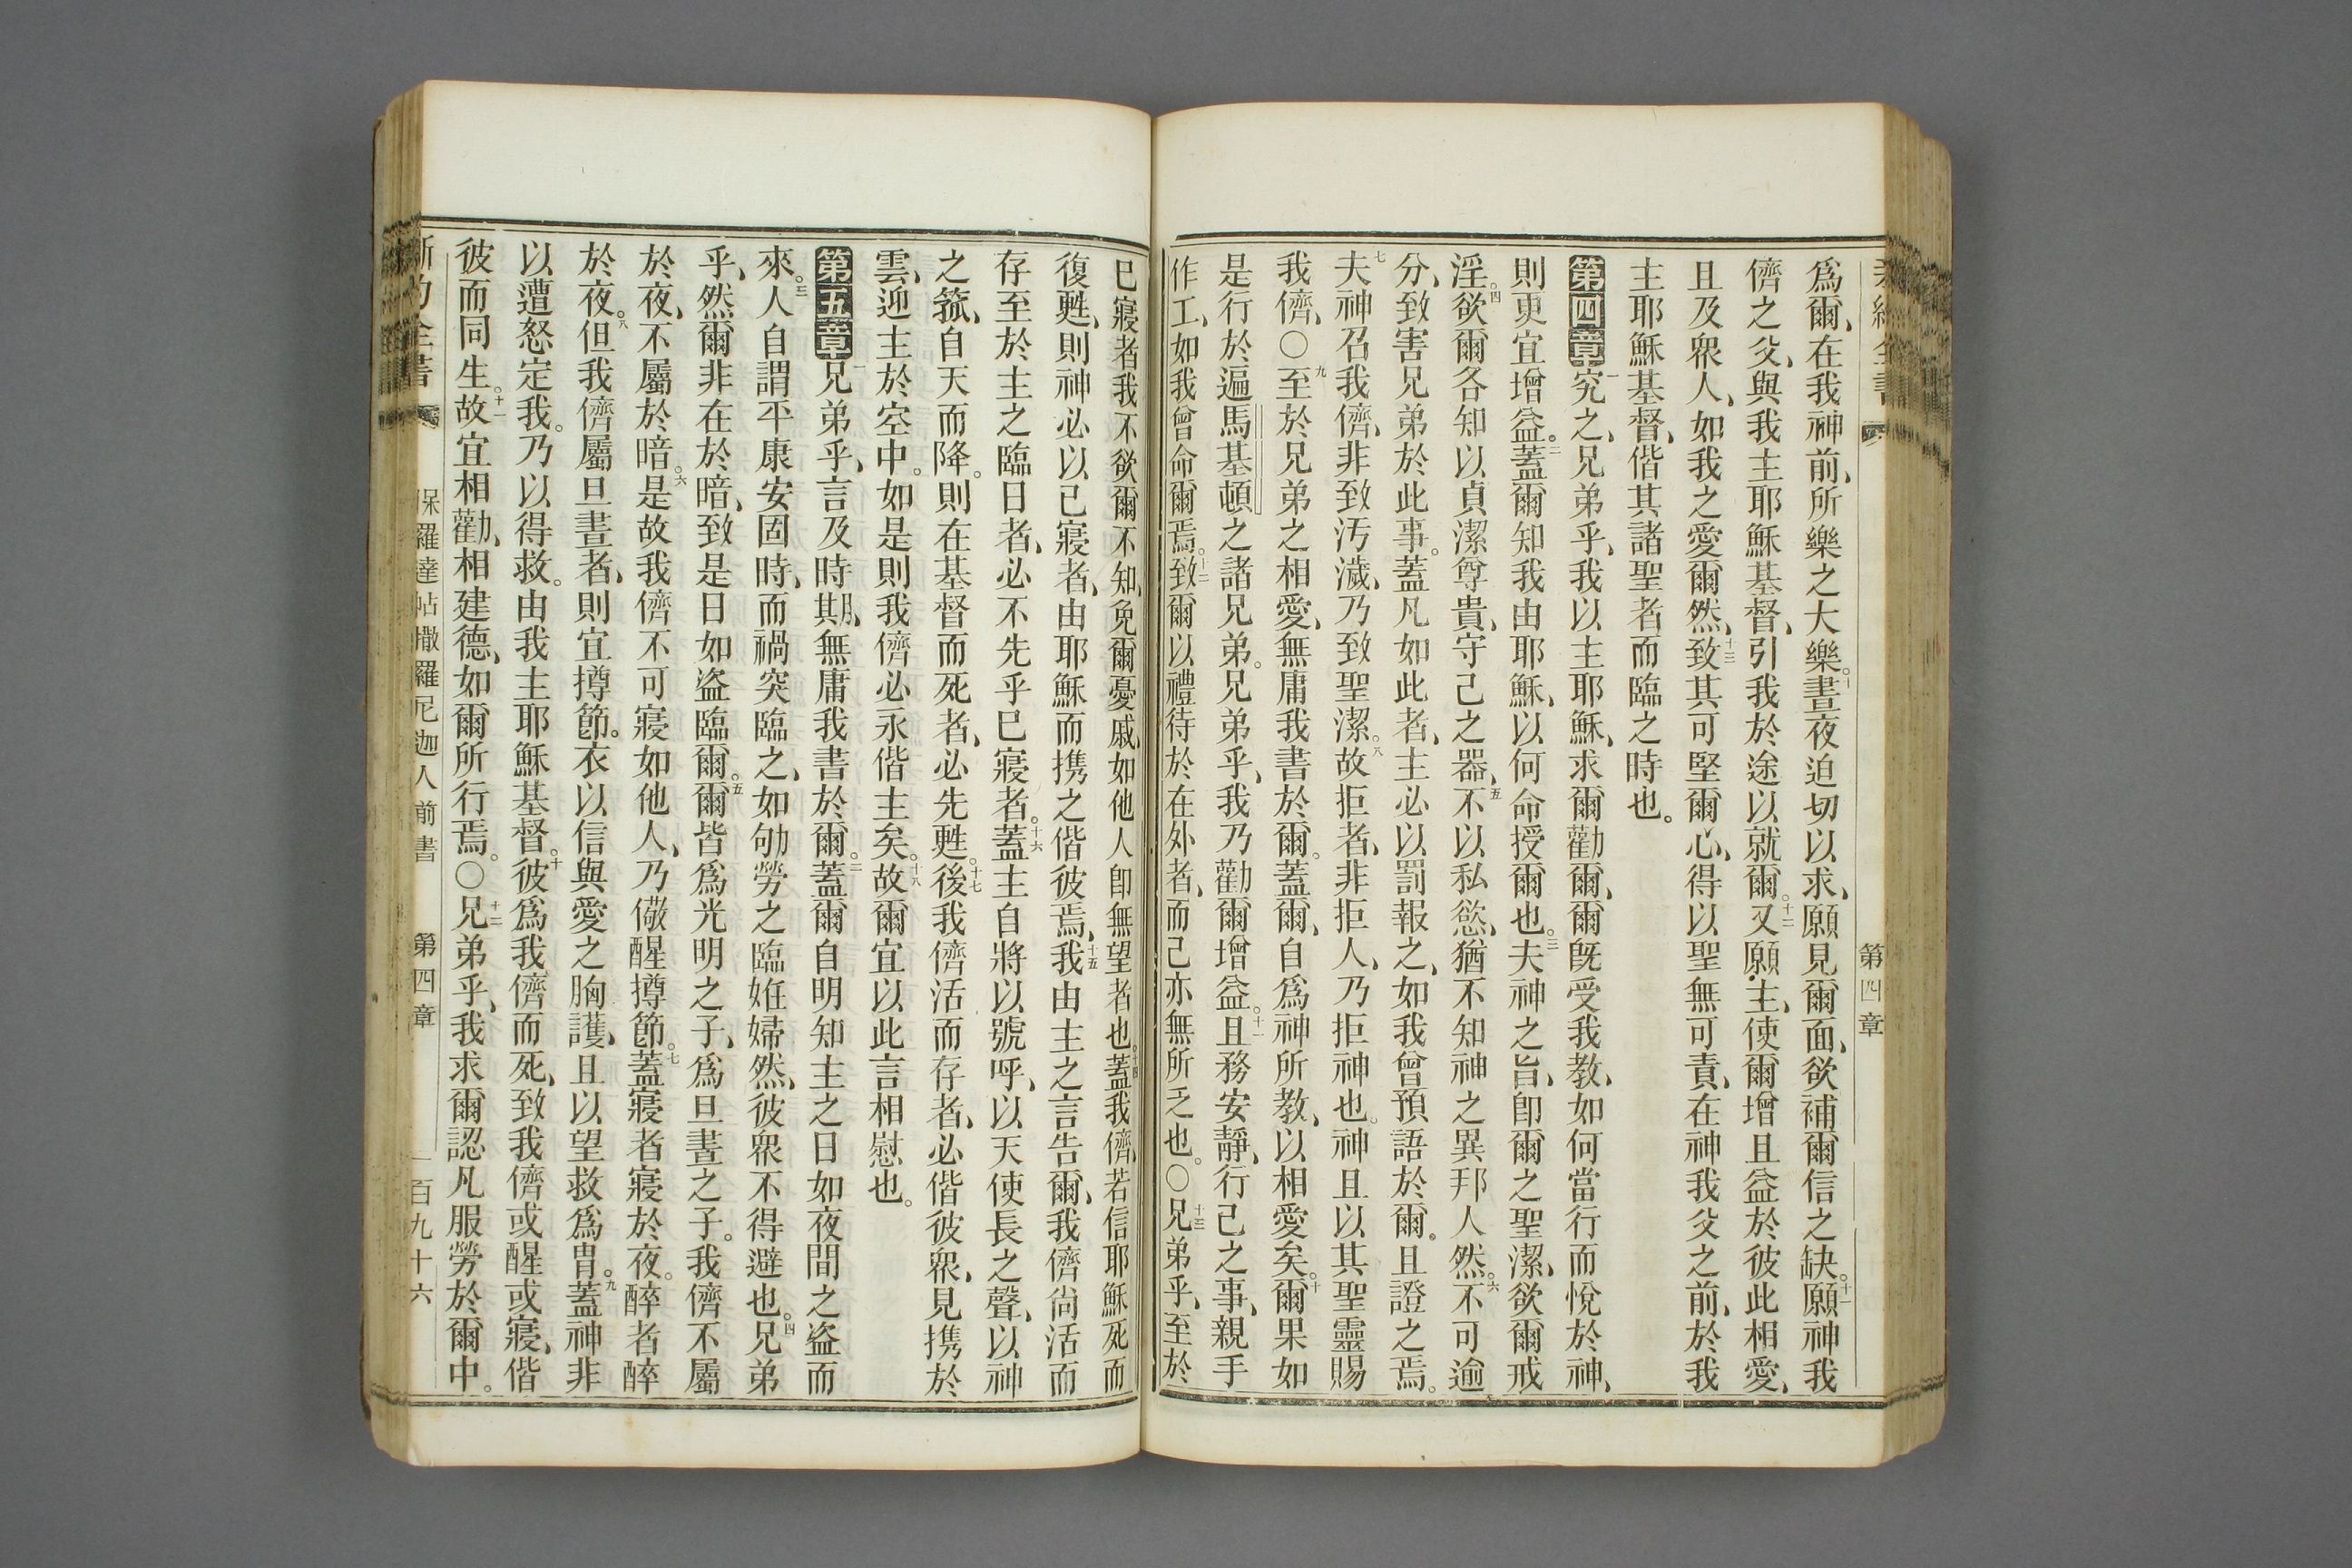 第四章
爲爾、在我神前、所樂之大樂。十晝夜迫切以求、願見爾面、欲補爾信之缺。十一願神我
儕之父、與我主耶穌基督、引我於途以就爾。十二又願主、使爾增且益於彼此相愛、
且及衆人、如我之愛爾然、十三致其可堅爾心、得以聖無可責、在神我父之前、於我
主耶穌基督、偕其諸聖者而臨之時也。
第四章一究之、兄弟乎、我以主耶穌、求爾勸爾、爾旣受我教、如何當行而悅於神、
則更宜增益。二蓋爾知我由耶穌、以何命授爾也。三夫神之旨、卽爾之聖潔、欲爾戒
淫。四欲爾各知以貞潔尊貴、守己之器、五不以私慾、猶不知神之異邦人然。六不可逾
分、致害兄弟於此事。蓋凡如此者、主必以罰報之、如我曾預語於爾。且證之焉。
七夫神召我儕、非致汚濊、乃致聖潔。八故拒者、非拒人、乃拒神也。神且以其聖靈賜
我儕、〇九至於兄弟之相愛、無庸我書於爾。蓋爾、自爲神所教、以相愛矣。十爾果如
是行於遍馬基頓之諸兄弟。兄弟乎、我乃勸爾增益。十一且務安靜、行己之事、親手
作工、如我曾命爾焉。十二致爾以禮待於在外者、而己亦無所乏也。〇十三兄弟乎、至於
已寢者我不欲爾不知、免爾憂戚、如他人卽無望者也。十四蓋我儕、若信耶穌死而
復甦、則神必以已寢者、由耶穌而携之偕彼焉、十五我由主之言告爾、我儕尙活而
存至於主之臨日者、必不先乎已寢者。十六蓋主自將以號呼、以天使長之聲、以神
之箛、自天而降。則在基督而死者、必先甦。十七後我儕活而存者、必偕彼衆、見携於
雲、迎主於空中。如是則我儕必永偕主矣。十八故爾宜以此言相慰也。
第五章一兄弟乎、言及時期、無庸我書於爾。二蓋爾自明知主之日如夜間之盜而
來。三人自謂平康安固時、而禍突臨之、如劬勞之臨姙婦然、彼衆不得避也。四兄弟
乎、然爾非在於暗、致是日如盜臨爾。五爾皆爲光明之子、爲旦晝之子。我儕不屬
於夜、不屬於暗。六是故我儕不可寢如他人、乃儆醒撙節。七蓋寢者寢於夜。醉者醉
於夜。八但我儕屬旦晝者、則宜撙節。衣以信與愛之胸護、且以望救爲冑。九蓋神非
以遭怒定我。乃以得救。由我主耶穌基督。十彼爲我儕而死、致我儕或醒或寢、偕
彼而同生。十一故宜相勸、相建德、如爾所行焉。〇十二兄弟乎、我求爾認凡服勞於爾中。
新約全書 保羅達帖撒羅尼迦人前書 第四章 一百九十六